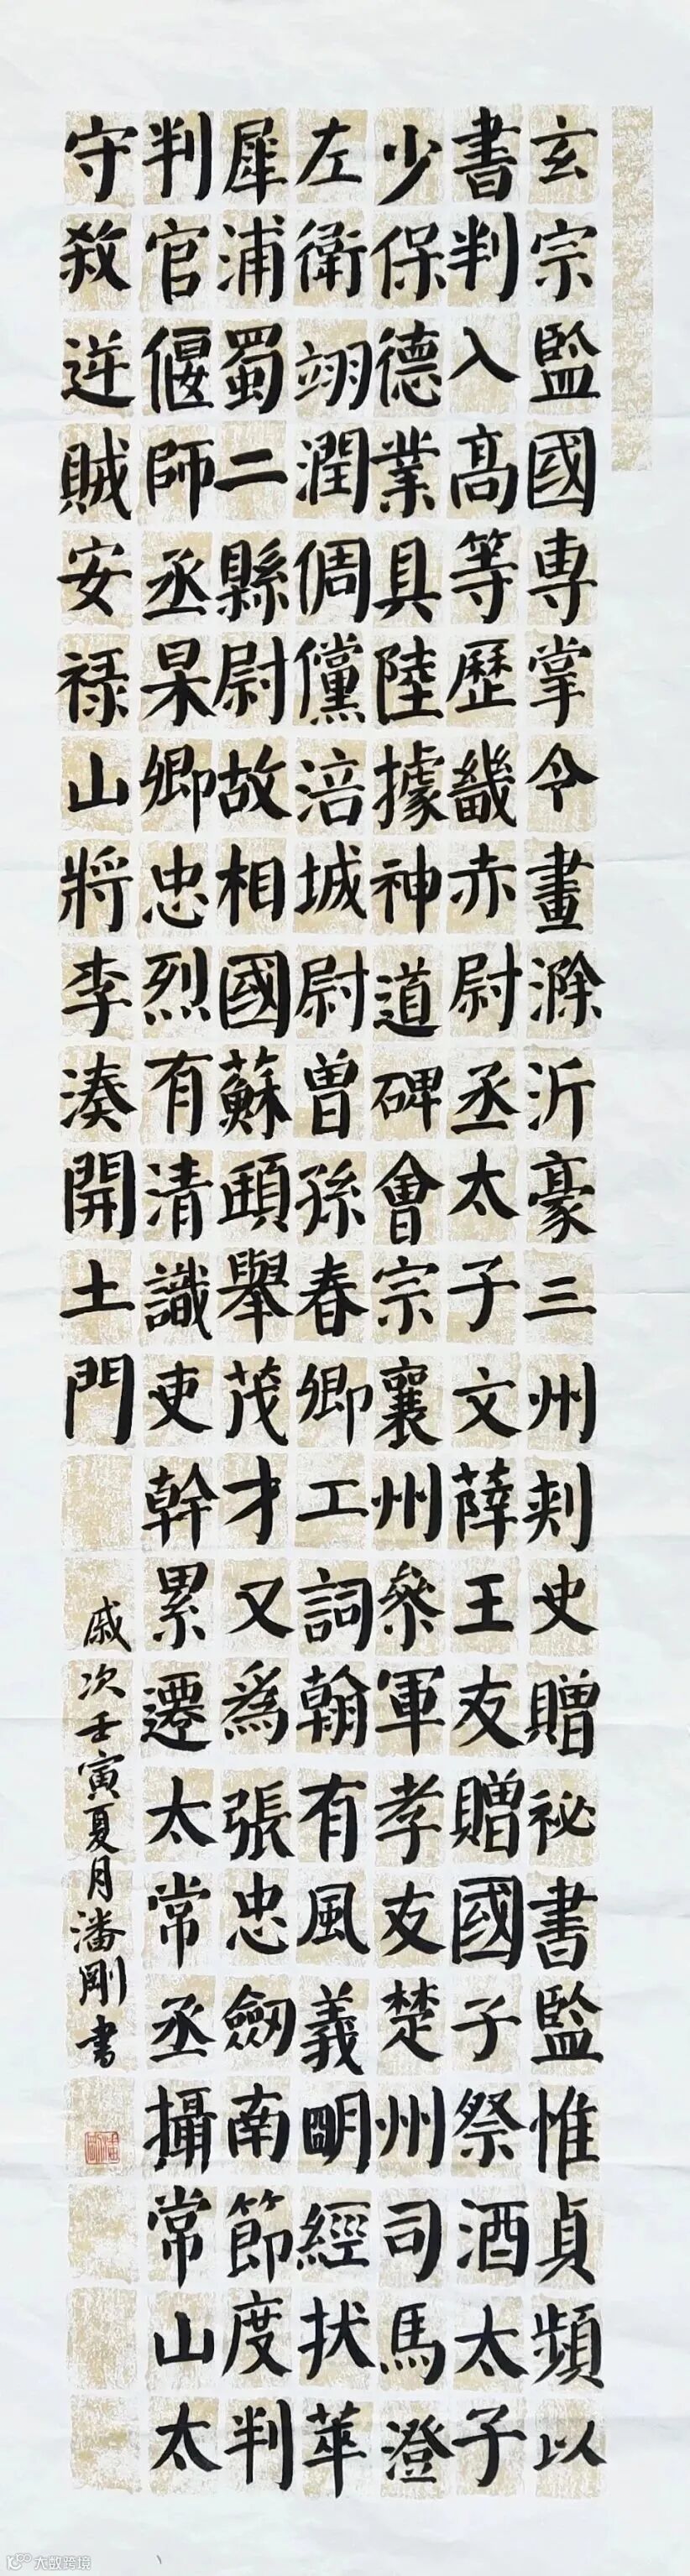 玄宗監國專掌令畫滁沂豪三州刾史贈祕書監惟貞頻以
書判入高等歷畿赤尉丞太子文薛王友贈國子祭酒太子
少保德業具陸據神道碑會宗襄州叅軍孝友楚州司馬澄
左衛翊潤倜儻涪城尉曾孫春卿工詞翰有風義明經拔萃
犀浦蜀二縣尉故相國蘇頲舉茂才又為張忠劒南節度判
判官偃師丞杲卿忠烈有清識吏幹累遷太常丞攝常山太
守殺逆賊安祿山將李湊開土門
歲次壬寅夏月潘剛書
大數跨境